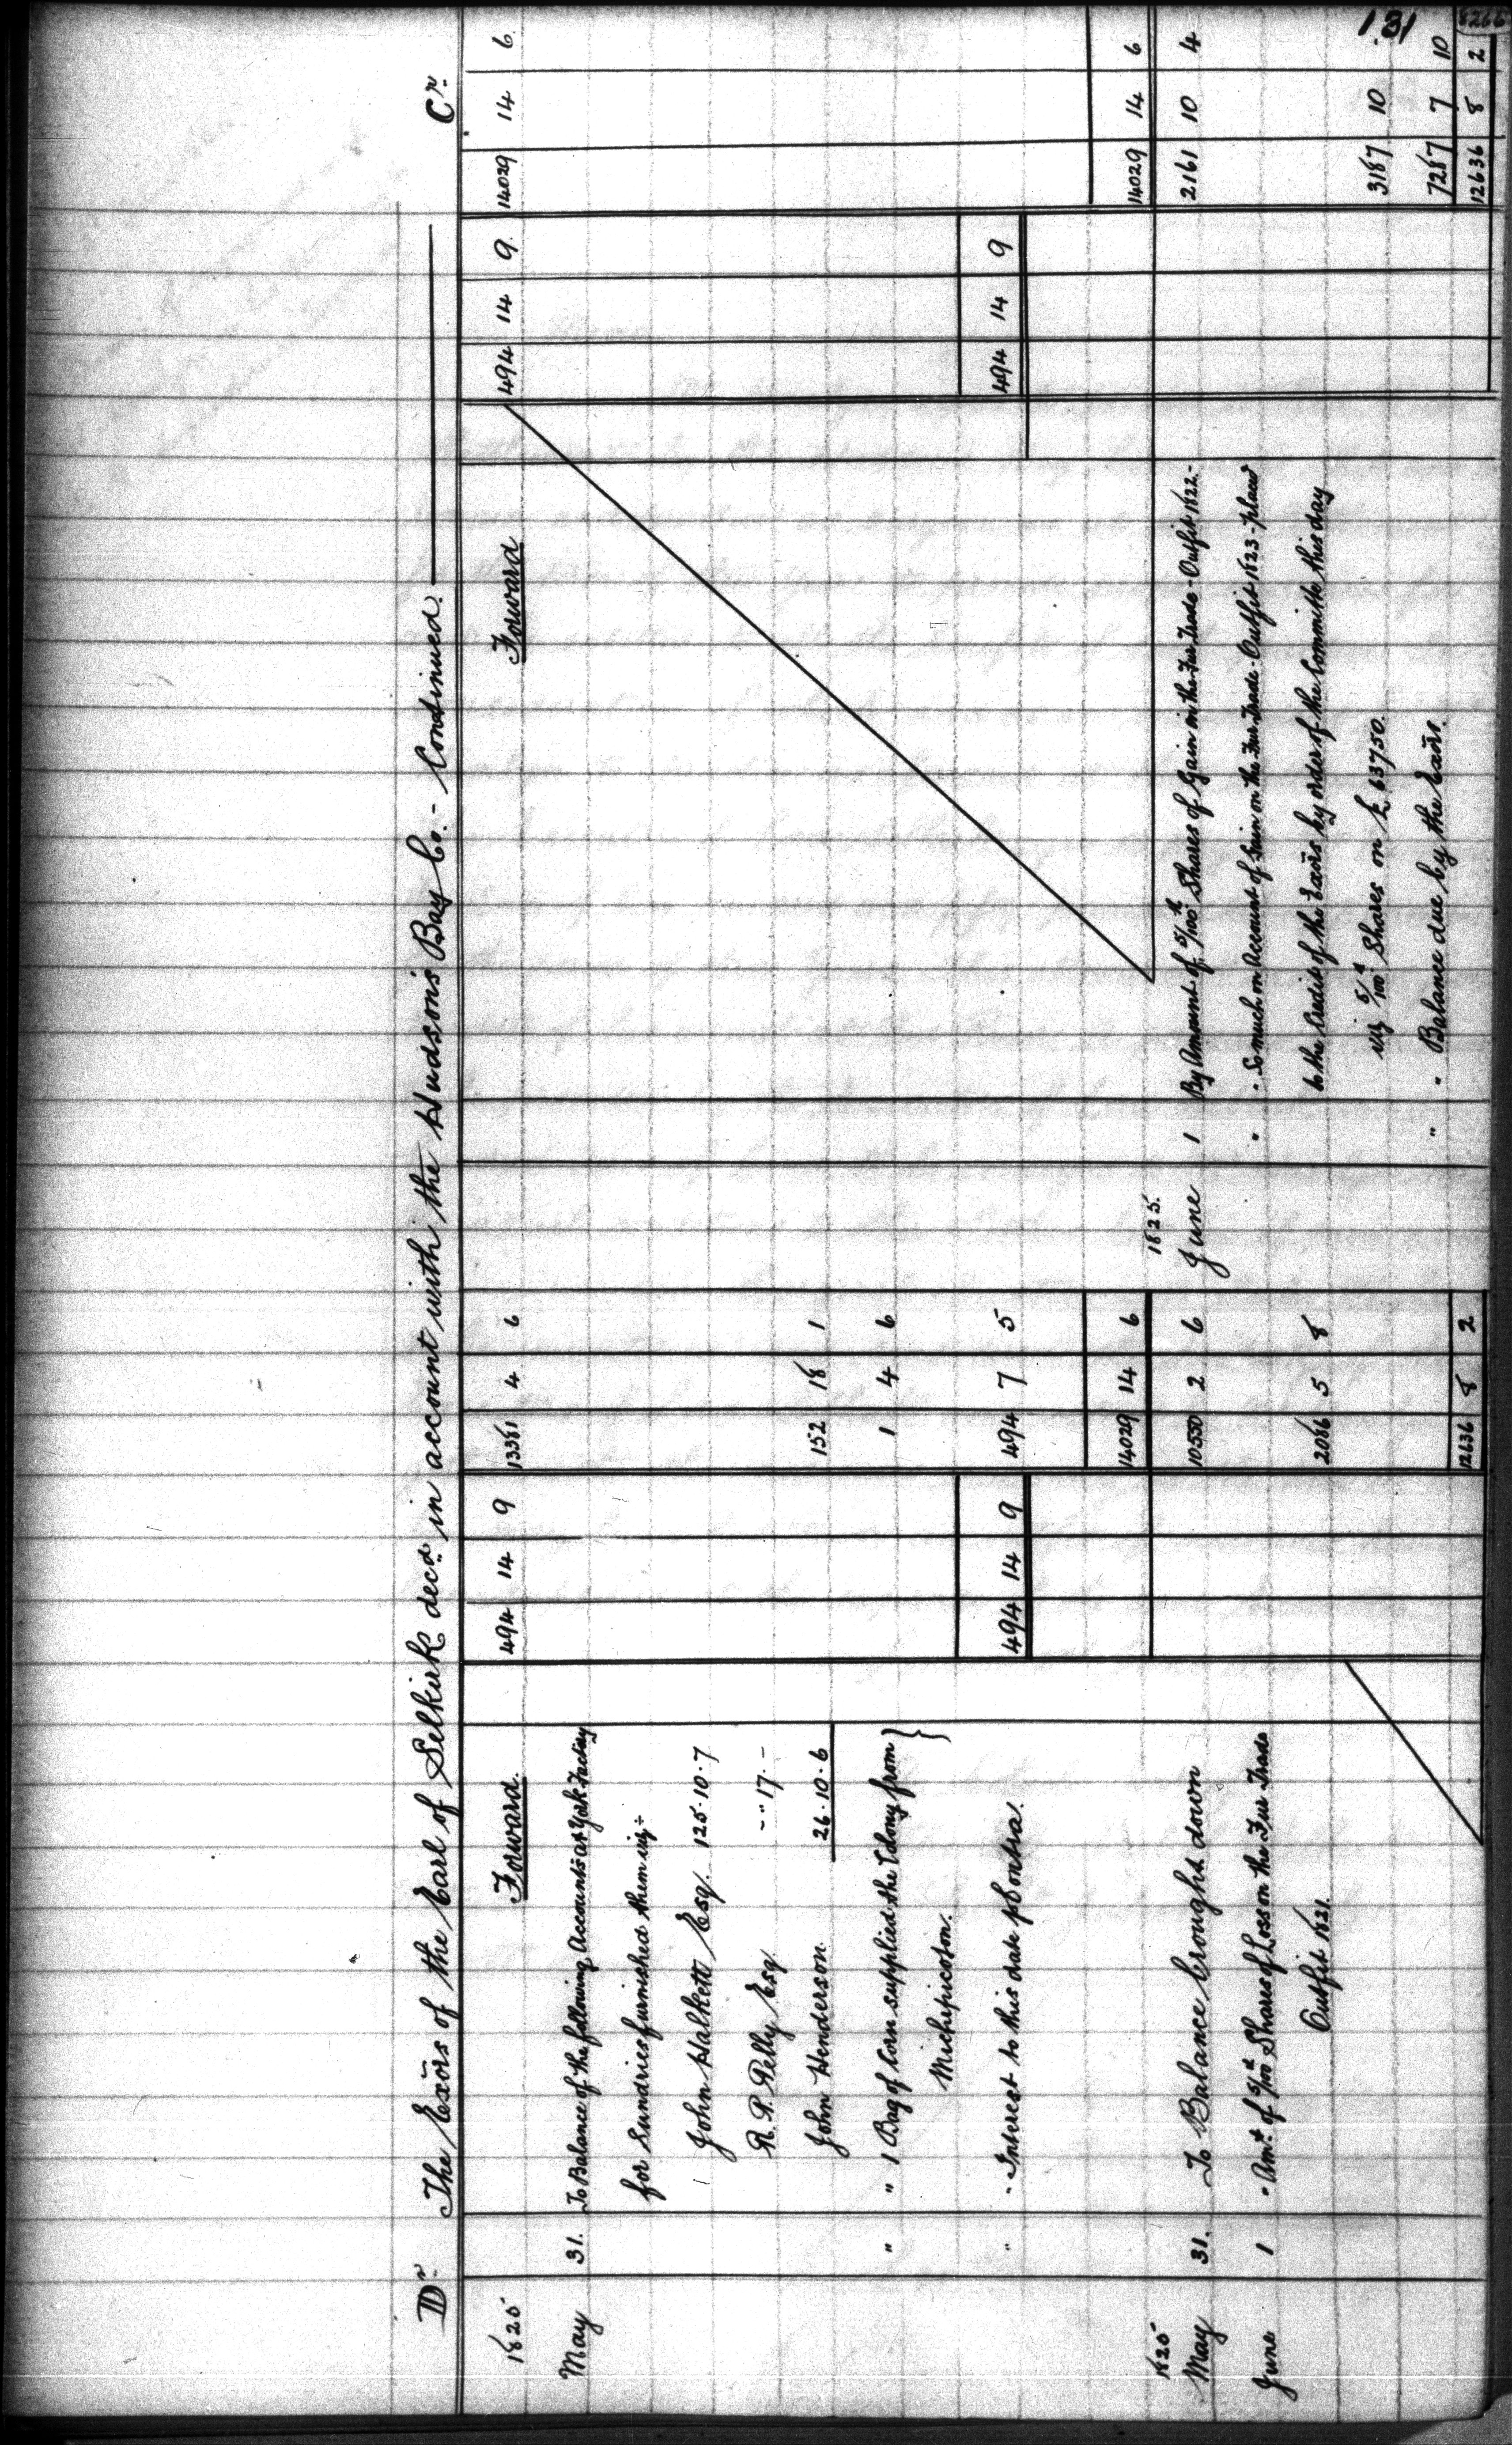 131
8266
Dr. The Exōrs of the Earl of Selkirk decd. in account with the Hudson's Bay Co. - Continued. Cr.
1825 Forward. 494 14 9 13381 4 6
May 31. To Balance of the following Accounts at York Factory
for Sundries furnished them viz:
John Halkett Esq. 125.10.7
R. P. Pelly Esq - " 17. -
John Henderson. 26.10.6 152 18 1
" " 1 Bag of Corn supplied the Colony from } 1 4 6
Michipicoton.
" - Interest to this date p Contra. 494 14 9 494 7 5
14029 14 6
1825
May 31. To Balance brought down 10550 2 6
June 1 " Amt. of 5/100th Shares of Loss on the Fur Trade
Outfit 1821. 2086 5 8
12636 8 2
Forward 494 14 9 14029 14 6
494 14 9
14029 14 6
1825.
June 1 By Amount of 5/100th Shares of Gain in the Fur Trade - Outfit 1822.- 2161 10 4
" " So much on Account of Gain on the Fur Trade - Outfit 1823 - placed
to the Credit of the Exōrs by order of the Committe this day
viz 5/100th Shares on £ 63750. 3187 10 -
" " Balance due by the Exōrs. 7287 7 10
12636 8 2